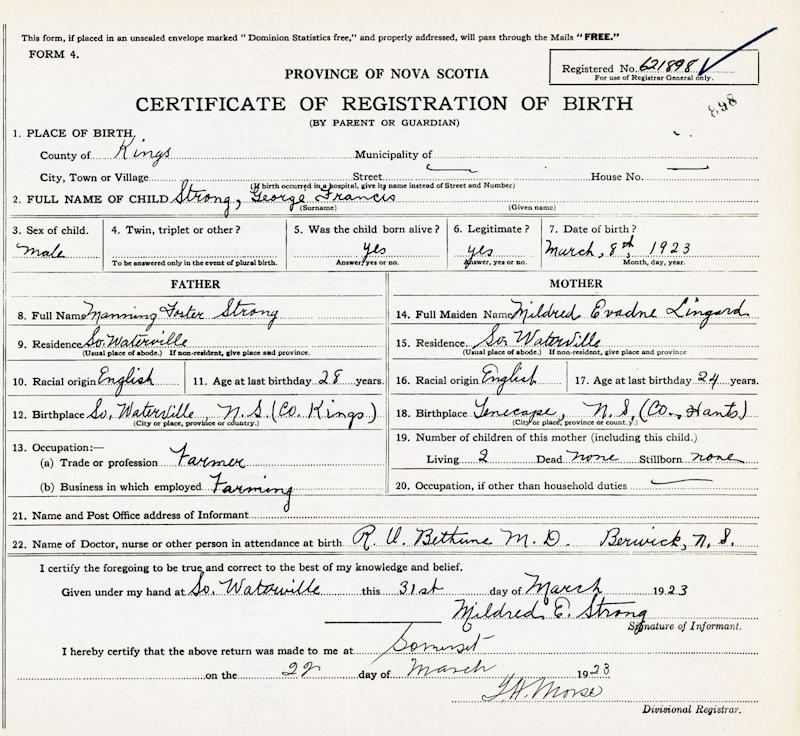 This form, if placed in an unsealed envelope marked "Dominion Statistics free," and properly addressed, will pass through the Mails "FREE."
FORM 4.
Registered No. 621898
For use of Registrar General only.
PROVINCE OF NOVA SCOTIA
898
CERTIFICATE OF REGISTRATION OF BIRTH
(BY PARENT OR GUARDIAN)
1. PLACE OF BIRTH,
County of Kings Municipality of
City, Town or Village Street House No.
(If birth occurred in a hospital, give its name instead of Street and Number)
2. FULL NAME OF CHILD Strong, George Francis
(Surname) (Given name)
3. Sex of child. 4. Twin, triplet or other? 5. Was the child born alive? 6. Legitimate? 7. Date of birth?
Male yes yes March, 8th, 1923
To be answered only in the event of plural birth. Answer, yes or no. Answer, yes or no. Month, day, year.
FATHER MOTHER
8. Full Name Manning Foster Strong 14. Full Maiden Name Mildred Evadne Lingard
9. Residence So. Waterville 15. Residence. So. Waterville
(Usual place of abode.) If non-resident, give place and province. (Usual place of abode.) If non-resident, give place and province
10. Racial origin English 11. Age at last birthday 28 years. 16. Racial origin English 17. Age at last birthday 24 years.
12. Birthplace So. Waterville, N.S. (Co. Kings) 18. Birthplace Tenecape, N.S. (Co. Hants)
(City or place, province or country.) (City or place, province or count.y.)
13. Occupation:— 19. Number of children of this mother (including this child.)
(a) Trade or profession Farmer Living 2 Dead none Stillborn none
(b) Business in which employed Farming 20. Occupation, if other than household duties
21. Name and Post Office address of Informant
22. Name of Doctor, nurse or other person in attendance at birth R. W. Bethune M. D. Berwick, N. S.
I certify the foregoing to be true and correct to the best of my knowledge and belief.
Given under my hand at So. Waterville this 31st day of March 1923
Mildred E. Strong
Signature of Informant.
I hereby certify that the above return was made to me at Somerset
on the 22 day of March 1923
Morse
Divisional Registrar.